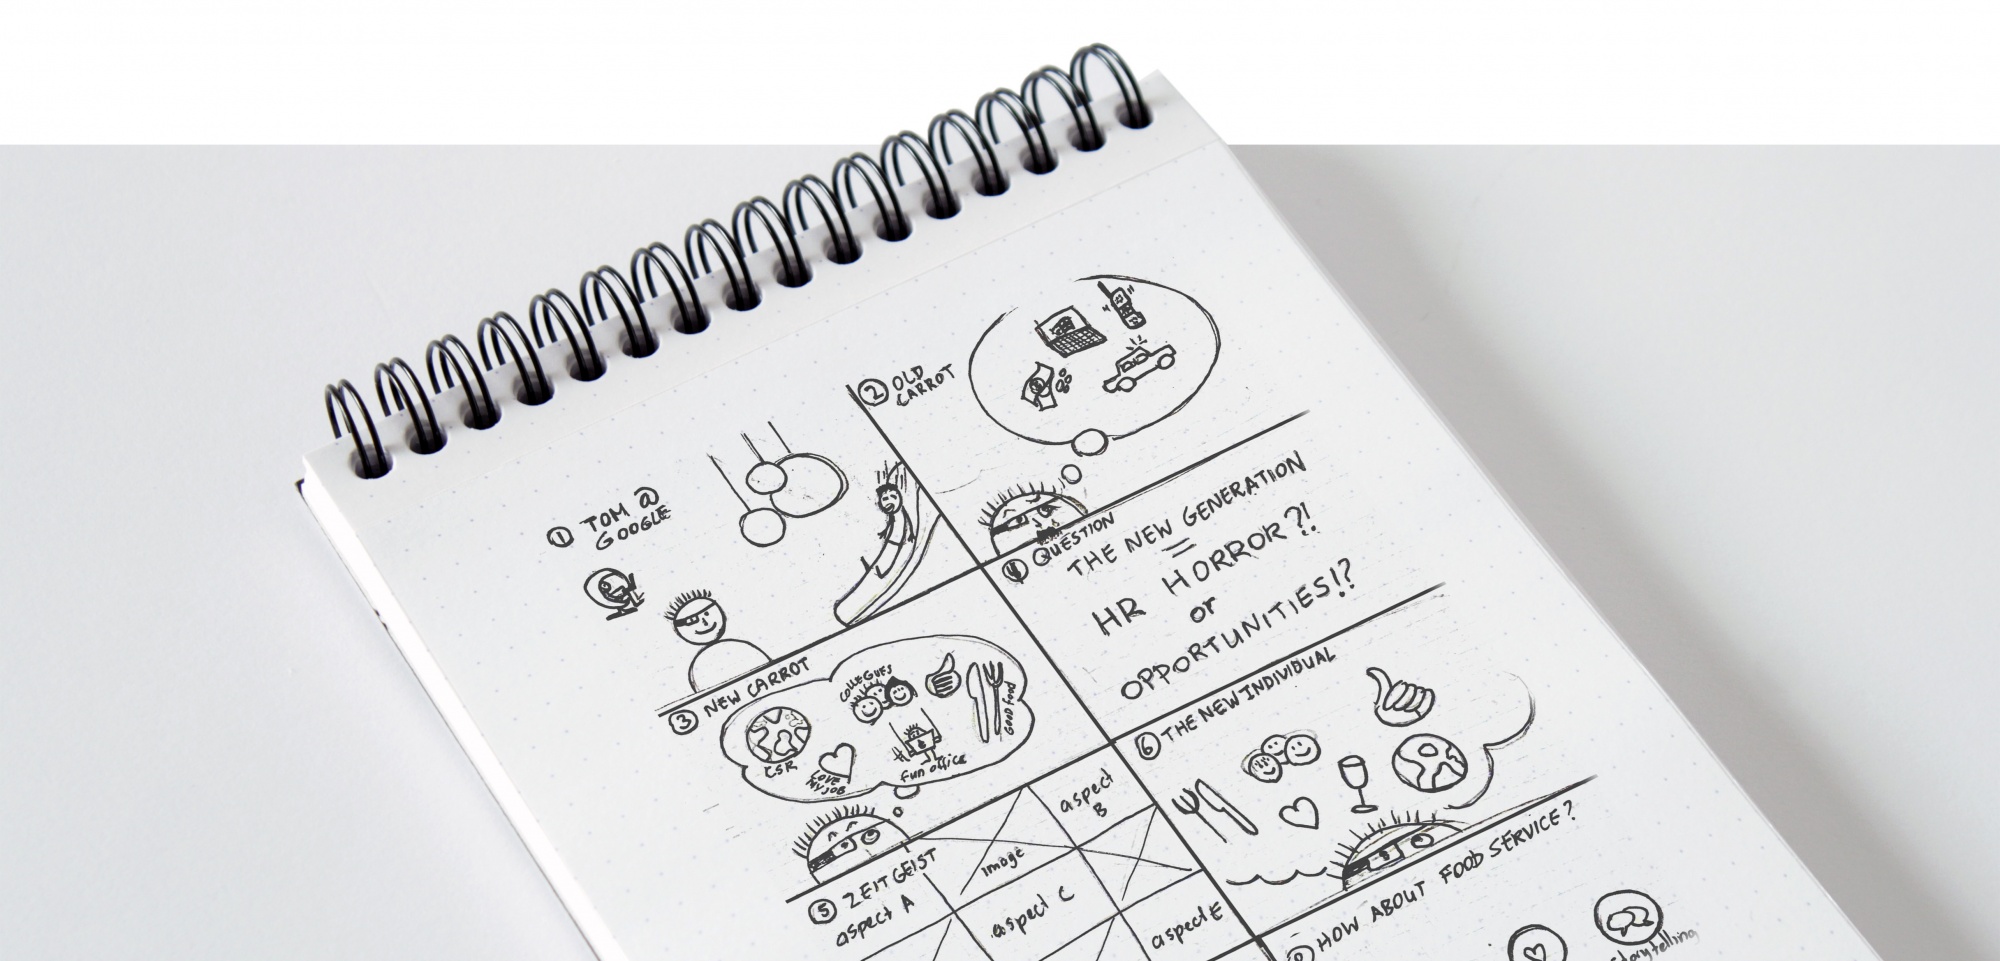 1 TOM @
GOOGLE
2 OLD
CARROT
3 NEW CARROT
CSR
LOVE
MY JOB
COLLEGUES
fun office
GOOD FOOD
4 QUESTION
THE NEW GENERATION
=
HR HORROR?!
or
OPPORTUNITIES!?
5 ZEITGEIST
aspect A
image
aspect
B
aspect C
aspect E
6 THE NEW INDIVIDUAL
HOW ABOUT FOOD SERVICE?
storytelling